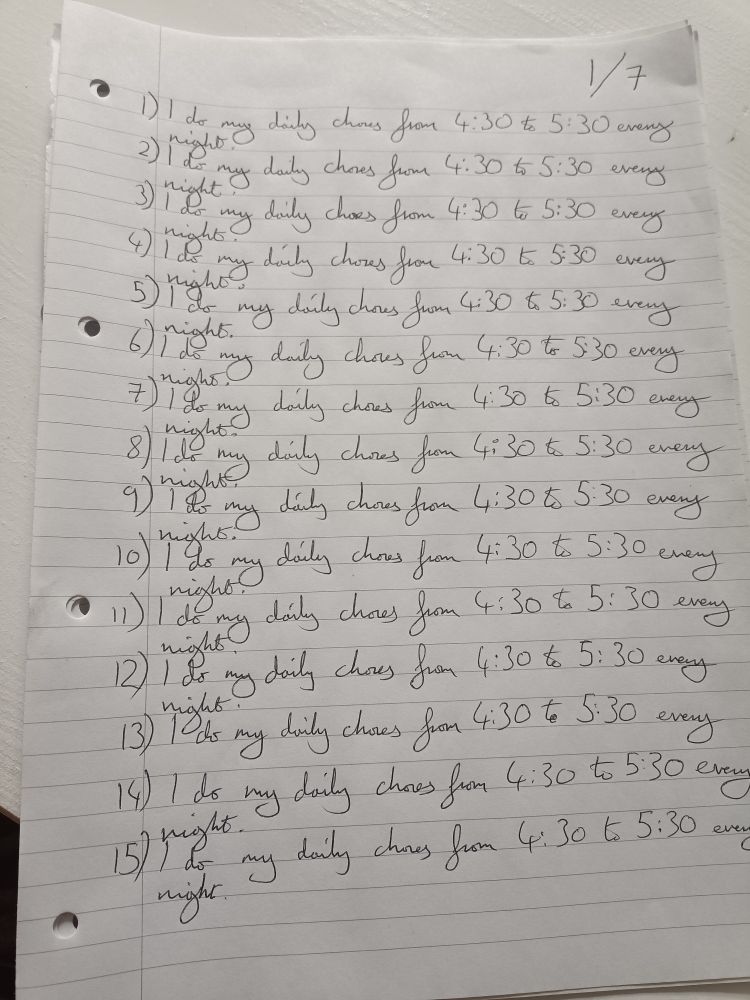 1/7
1) I do my daily chores from 4:30 to 5:30 every
night.
2) I do my daily chores from 4:30 to 5:30 every
night.
3) I do my daily chores from 4:30 to 5:30 every
night.
4) I do my daily chores from 4:30 to 5:30 every
night.
5) I do my daily chores from 4:30 to 5:30 every
night.
6) I do my daily chores from 4:30 to 5:30 every
night.
7) I do my daily chores from 4:30 to 5:30 every
night.
8) I do my daily chores from 4:30 to 5:30 every
night.
9) I do my daily chores from 4:30 to 5:30 every
night.
10) I do my daily chores from 4:30 to 5:30 every
night.
11) I do my daily chores from 4:30 to 5:30 every
night.
12) I do my daily chores from 4:30 to 5:30 every
night.
13) I do my daily chores from 4:30 to 5:30 every
14) I do my daily chores from 4:30 to 5:30 every
night.
15) I do my daily chores from 4:30 to 5:30 every
night.